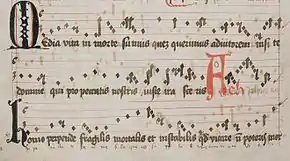 Media vita in morte sumus quez querimus adiutorem nisi te
domine qui pro peccatis nostris iuste ira sceris Ach
homo perpende fragilis mortalis et instabilis qd vitare nō poteris mor